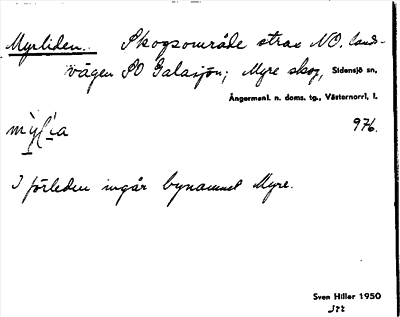 Myrliden. Skogsområde strax NO. lands-
vägen SO Galasjön; Myre skog, Sidensjö sn,
Ångermanl. n. doms. tg., Västernorrl. l.
976.
I förleden ingår bynamnet Myre.
Sven Hiller 1950